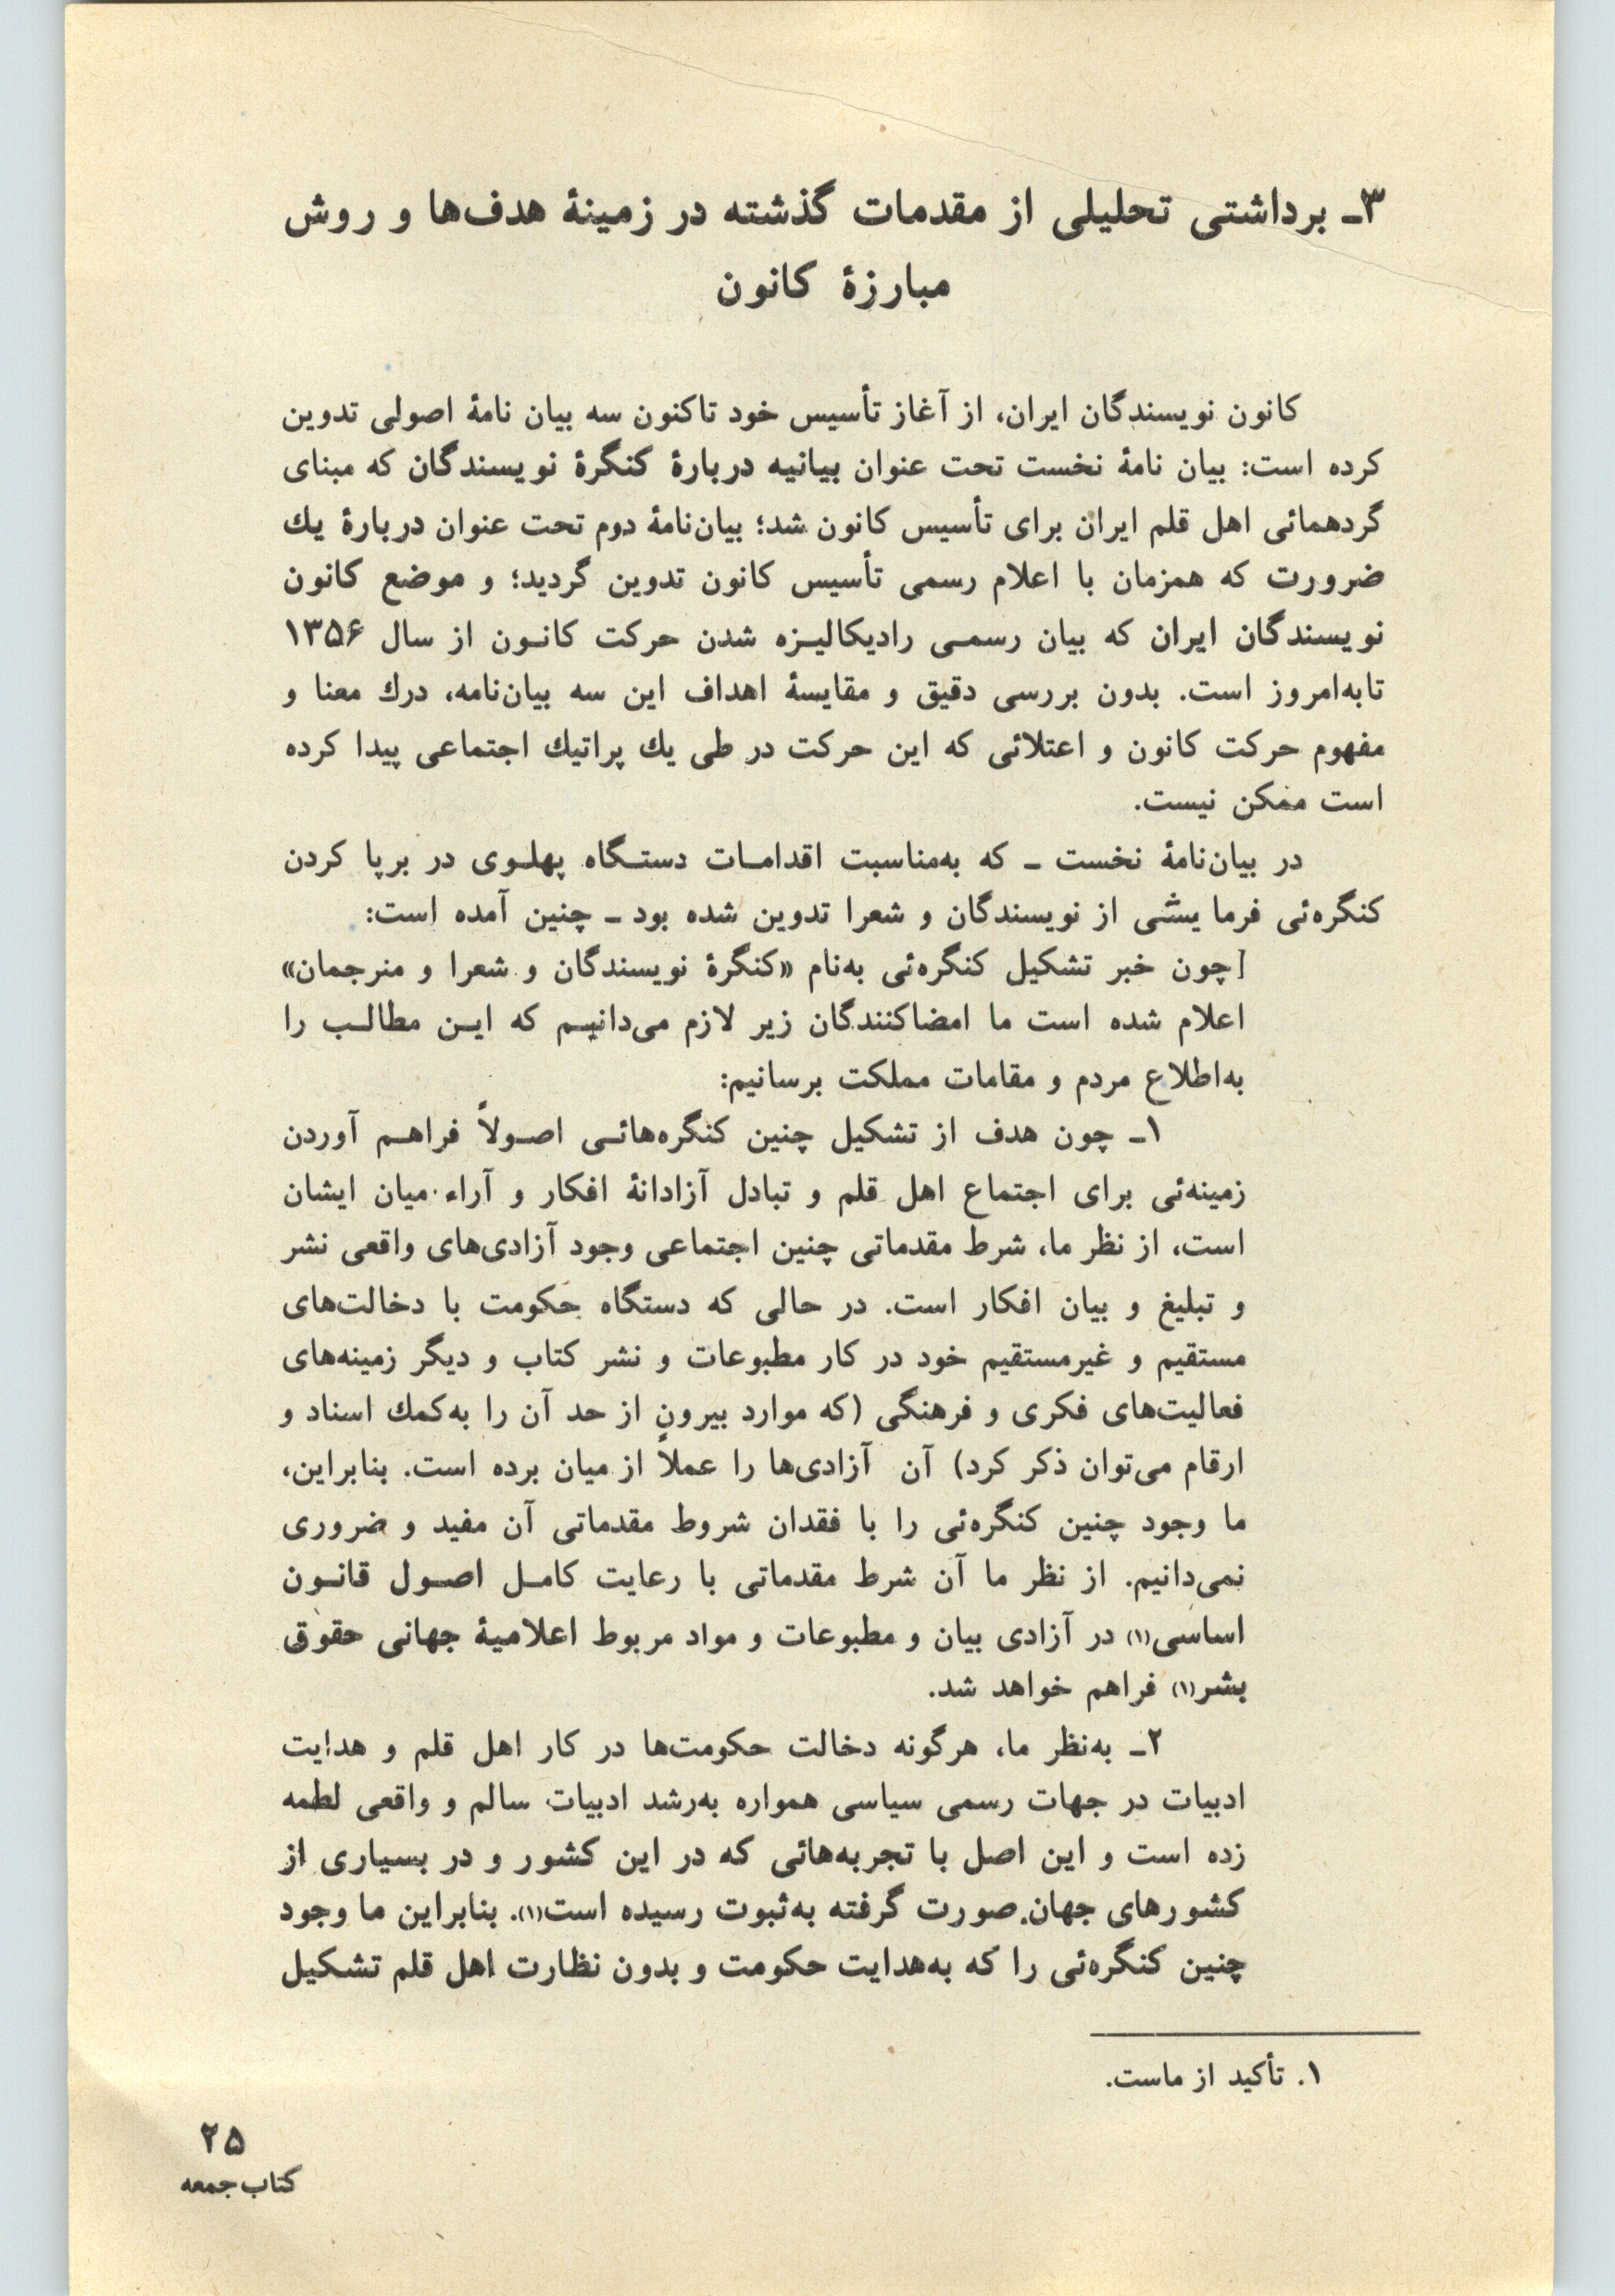 ۳ـ برداشتی تحلیلی از مقدمات گذشته در زمینهٔ هدف‌ها و روش
مبارزهٔ کانون
کانون نویسندگان ایران، از آغاز تأسیس خود تاکنون سه بیان نامهٔ اصولی تدوین
کرده است: بیان نامهٔ نخست تحت عنوان بیانیه دربارهٔ کنگرهٔ نویسندگان که مبنای
گردهمائی اهل قلم ایران برای تأسیس کانون شد؛ بیان‌نامهٔ دوم تحت عنوان دربارهٔ یك
ضرورت که همزمان با اعلام رسمی تأسیس کانون تدوین گردید؛ و موضع کانون
نویسندگان ایران که بیان رسمـی رادیکالیـزه شدن حرکت کانـون از سال ۱۳۵۶
تابه‌امروز است. بدون بررسی دقیق و مقایسهٔ اهداف این سه بیان‌نامه، درك معنا و
مفهوم حرکت کانون و اعتلائی که این حرکت در طی یك پراتیك اجتماعی پیدا کرده
است ممکن نیست.
در بیان‌نامهٔ نخست ـ که به‌مناسبت اقدامـات دستـگاه پهلـوی در برپا کردن
کنگره‌ئی فرما یشی از نویسندگان و شعرا تدوین شده بود ـ چنین آمده است:
[چون خبر تشکیل کنگره‌ئی به‌نام «کنگرهٔ نویسندگان و شعرا و منرجمان»
اعلام شده است ما امضاکنندگان زیر لازم می‌دانیـم که ایـن مطالـب را
به‌اطلاع مردم و مقامات مملکت برسانیم:
۱ـ چون هدف از تشکیل چنین کنگره‌هائـی اصـولاً فراهـم آوردن
زمینه‌ئی برای اجتماع اهل قلم و تبادل آزادانهٔ افکار و آراء میان ایشان
است، از نظر ما، شرط مقدماتی چنین اجتماعی وجود آزادی‌های واقعی نشر
و تبلیغ و بیان افکار است. در حالی که دستگاه حکومت با دخالت‌های
مستقیم و غیرمستقیم خود در کار مطبوعات و نشر کتاب و دیگر زمینه‌های
فعالیت‌های فکری و فرهنگی (که موارد بیرون از حد آن را به‌کمك اسناد و
ارقام می‌توان ذکر کرد) آن آزادی‌ها را عملاً از میان برده است. بنابراین،
ما وجود چنین کنگره‌ئی را با فقدان شروط مقدماتی آن مفید و ضروری
نمی‌دانیم. از نظر ما آن شرط مقدماتی با رعایت کامـل اصـول قانـون
اساسی(۱) در آزادی بیان و مطبوعات و مواد مربوط اعلامیهٔ جهانی حقوق
بشر(۱) فراهم خواهد شد.
۲ـ به‌نظر ما، هرگونه دخالت حکومت‌ها در کار اهل قلم و هدایت
ادبیات در جهات رسمی سیاسی همواره به‌رشد ادبیات سالم و واقعی لطمه
زده است و این اصل با تجربه‌هائی که در این کشور و در بسیاری از
کشورهای جهان صورت گرفته به‌ثبوت رسیده است(۱). بنابراین ما وجود
چنین کنگره‌ئی را که به‌هدایت حکومت و بدون نظارت اهل قلم تشکیل
۱. تأکید از ماست.
۲۵
کتاب جمعه